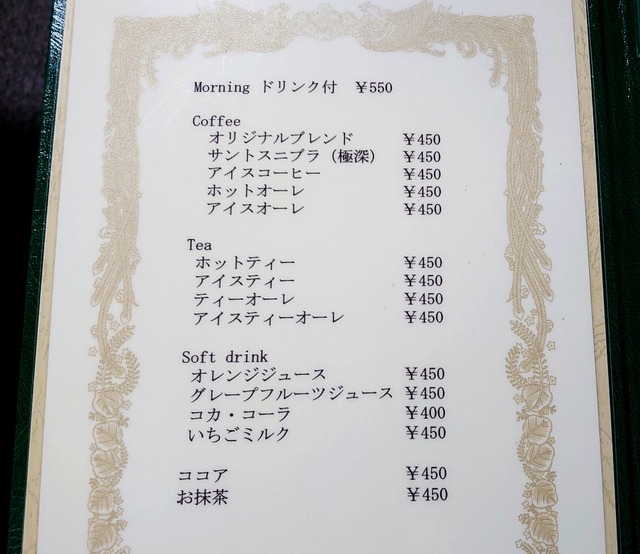 Morning ドリンク付 ￥550
Coffee
オリジナルブレンド ￥450
サントスニブラ（極深） ￥450
アイスコーヒー ￥450
ホットオーレ ￥450
アイスオーレ ￥450
Tea
ホットティー ￥450
アイスティー ￥450
ティーオーレ ￥450
アイスティーオーレ ￥450
Soft drink
オレンジジュース ￥450
グレープフルーツジュース ￥450
コカ・コーラ ￥400
いちごミルク ￥450
ココア ￥450
お抹茶 ￥450